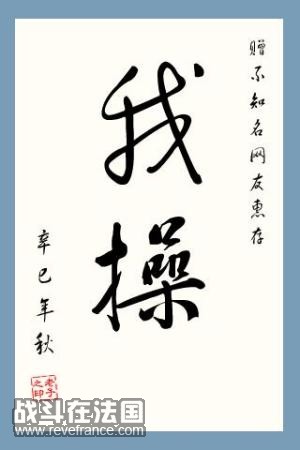 赠不知名网友惠存
我操
辛巳年秋
老子之印
战斗在法国
www.revefrance.com